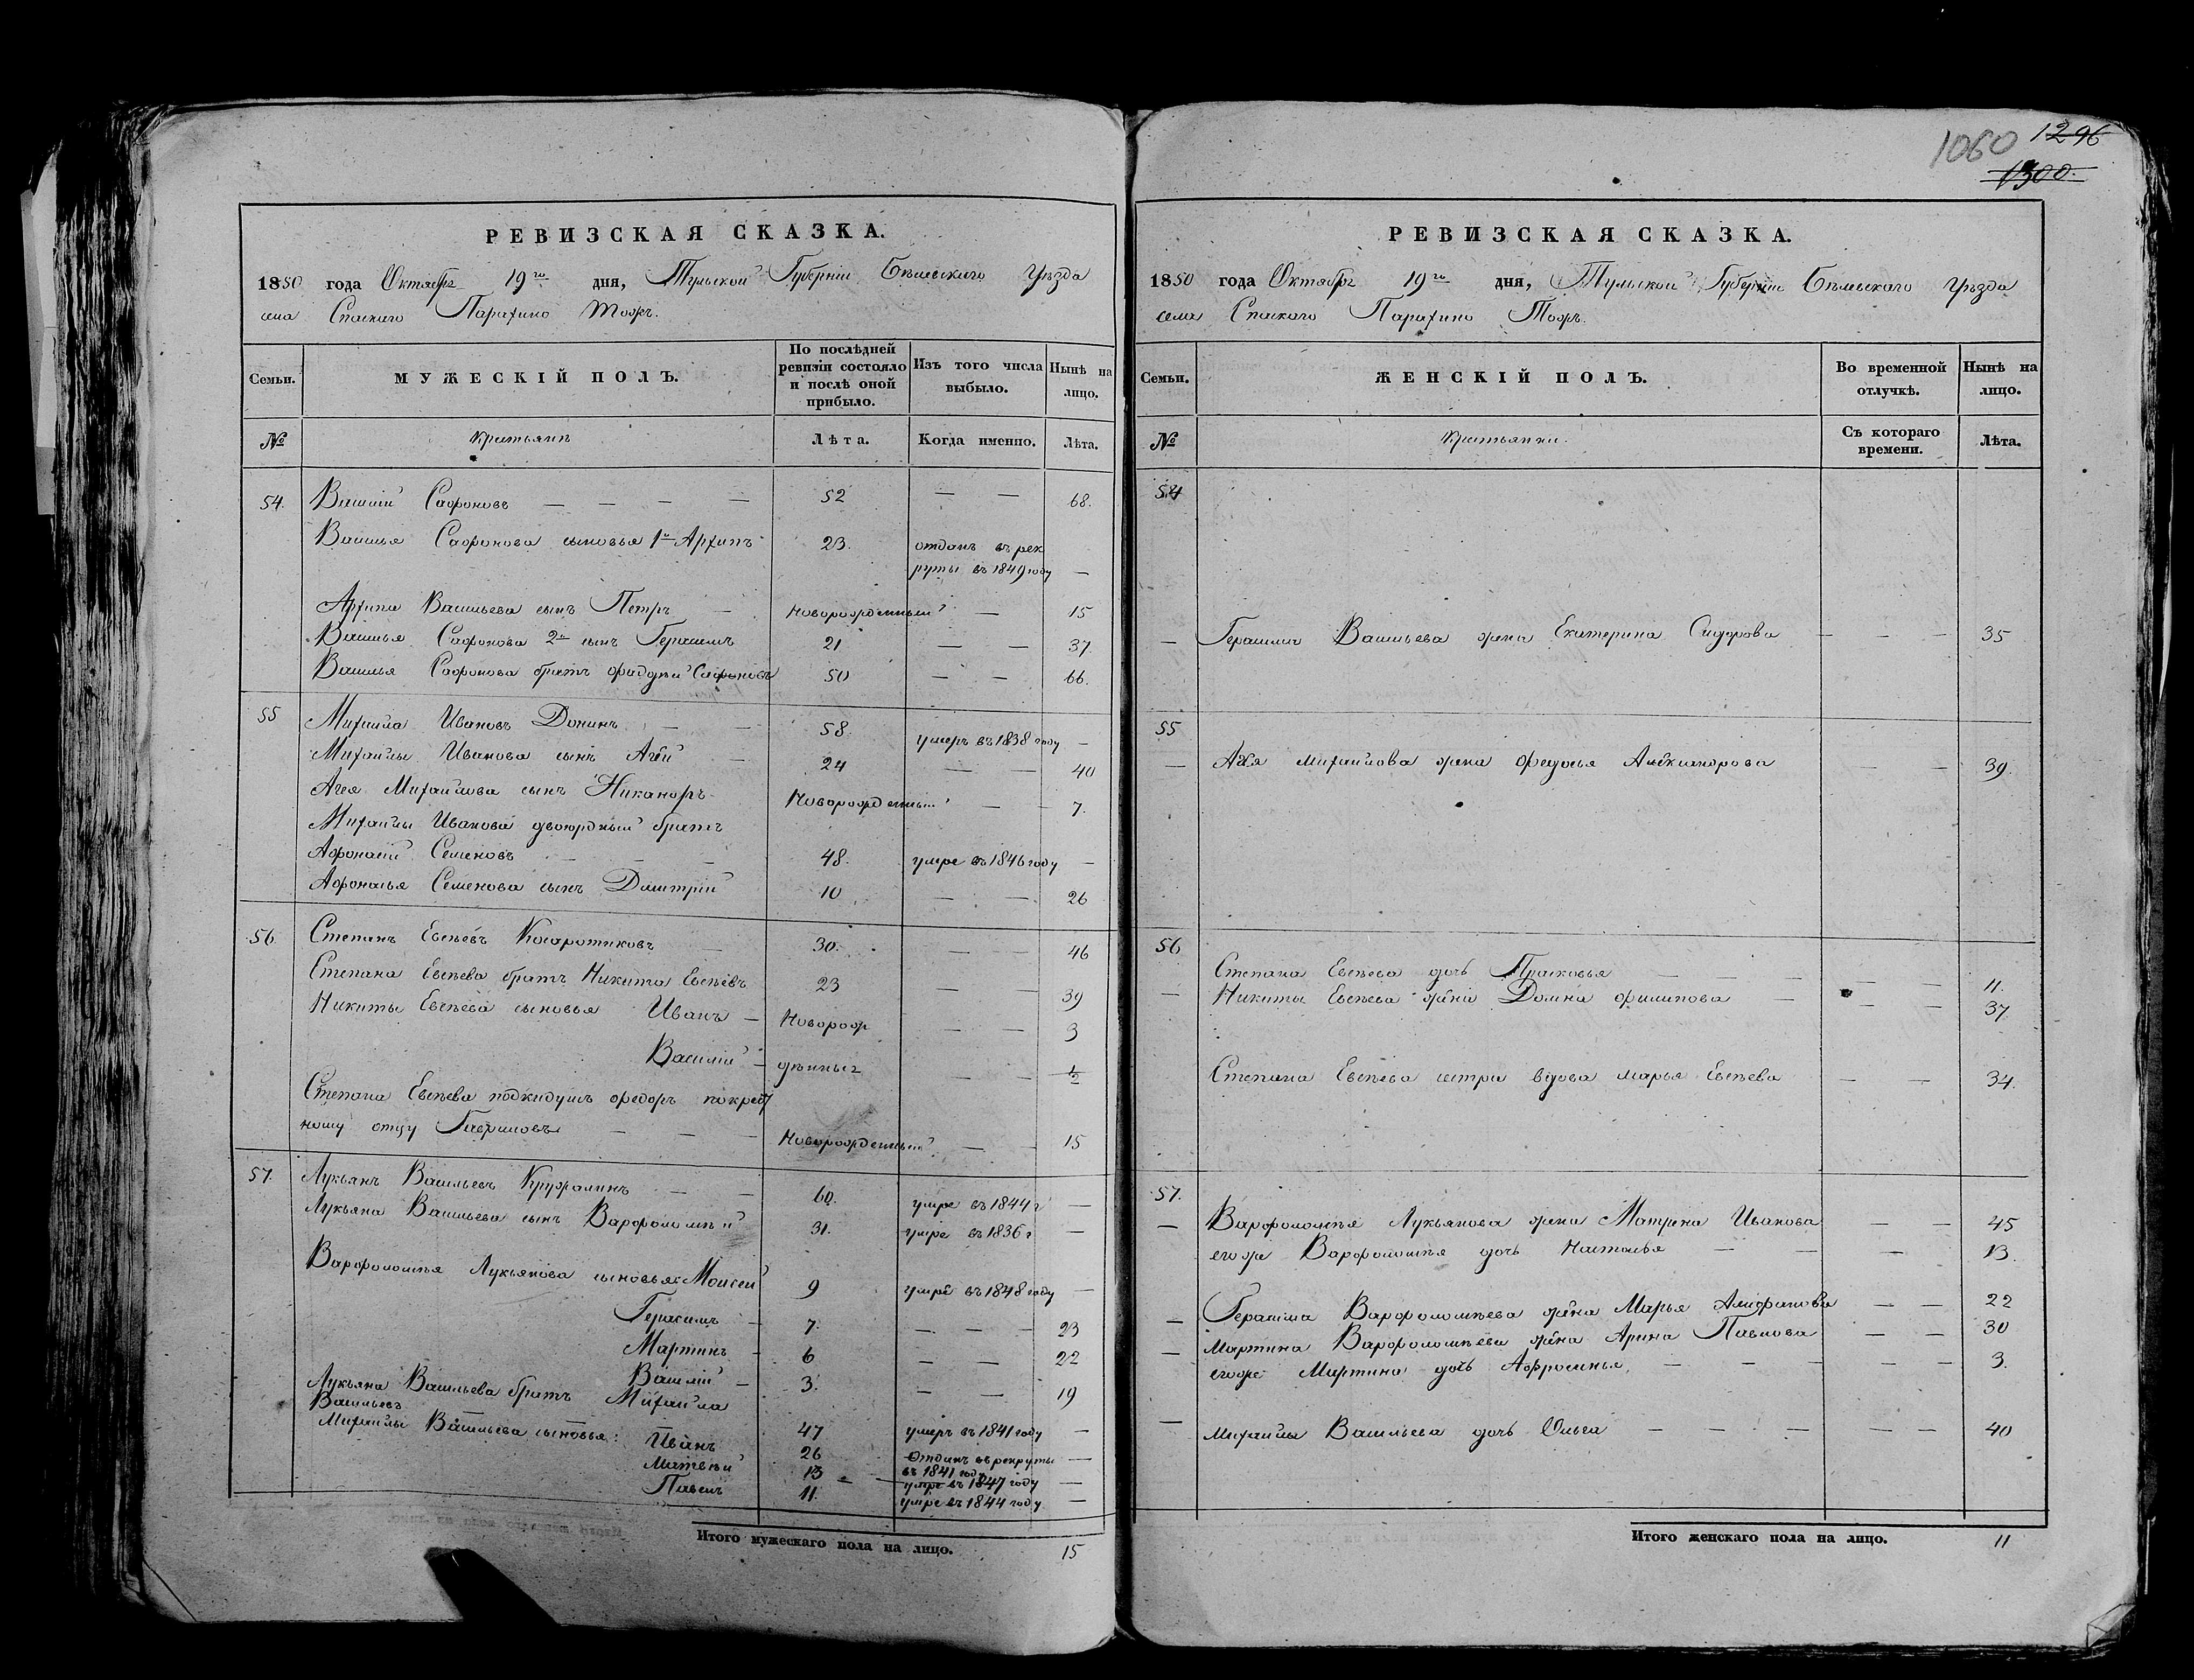 1060 1296
1300.
РЕВИЗСКАЯ СКАЗКА.
1850 года Октября 19го дня, Тульской Губерніи Бѣлевскаго Уѣзда
села Спаского Парахино Тожъ.
Семьи. МУЖЕСКІЙ ПОЛЪ. По послѣдней ревизіи состояло и послѣ оной прибыло. Изъ того числа выбыло. Нынѣ на лицо.
№ Крестьянъ Лѣта. Когда именно. Лѣта.
54. Василій Сафоновъ — — — — 52 — — 68.
Василья Сафонова сыновья 1й Архипъ 23. отданъ въ рек
руты въ 1849 году —
Архипа Васильева сынъ Петръ — Новорожденный — 15
Василья Сафонова 2й сынъ Герасимъ 21 — — 37.
Василья Сафонова братъ Фадѣй Сафоновъ 50 — — 66.
55 Михаила Ивановъ Донинъ — — 58. умеръ въ 1838 году —
Михайлы Иванова сынъ Агей — 24 — — 40
Агея Михайлова сынъ Никаноръ Новорожденный — — 7.
Михайлы Иванова двоюрдный братъ
Афонасій Семеновъ — — — 48. умре въ 1846 году —
Афонасья Семенова сынъ Дмитрій 10 — — 26
56. Степанъ Евсѣевъ — 30. — — 46
Степана Евсѣева братъ Никита Евсѣевъ 23 — — 39
Никиты Евсѣева сыновья Иванъ — Новорож — — 3
Василій — денныя — — 1/2
Степана Евсѣева подкидушъ Федоръ покрест
ному отцу Гавриловъ — — — Новорожденный — — 15
57. Лукьянъ Васильевъ — — 60. умре въ 1844 г —
Лукьяна Васильева сынъ Варфоломѣй 31. умре въ 1836 г —
Варфоломѣя Лукьянова сыновья: Моисей 9 умре въ 1848 году —
Герасимъ — 7. — — — 23
Мартинъ — 6 — — 22
Василій — 3. — — 19
Лукьяна Васильева братъ Михайла
Васильевъ 47 умеръ въ 1841 году —
Михайлы Васильева сыновья: Иванъ 26 Отданъ въ рекруты —
въ 1841 году
Матвѣй 13 умре въ 1847 году —
Павелъ 11. умре въ 1844 году —
Итого мужескаго пола на лицо. 15
РЕВИЗСКАЯ СКАЗКА.
1850 года Октября 19го дня, Тульской Губерніи Бѣлевскаго Уѣзда
села Спаского Парахино Тожъ.
Семьи. ЖЕНСКІЙ ПОЛЪ. Во временной отлучкѣ. Нынѣ на лицо.
№ Крестьянки. Съ котораго времени. Лѣта.
54
— Герасима Васильева жена Екатерина Сидорова — — — 35
55
— Агея Михайлова жена Федосья Александрова — — 39.
56
Степана Евсѣева дочь Прасковья — — — — — 11.
— Никиты Евсѣева жена Домна Филипова — — — 37
Степана Евсѣева сестра вдова Марья Евсѣева — — 34.
57.
— Варфоломѣя Лукьянова жена Матрена Иванова — — 45
егоже Варфоломѣя дочь Наталья — — — 13.
— Герасима Варфоломѣева жена Марья — — 22
— Мартина Варфоломѣева жена Арина Павлова — — 30
егоже Мартина дочь Афросинья, — — — — — 3.
— Михайлы Васильева дочь Ольга — — — — — 40
Итого женскаго пола на лицо. 11